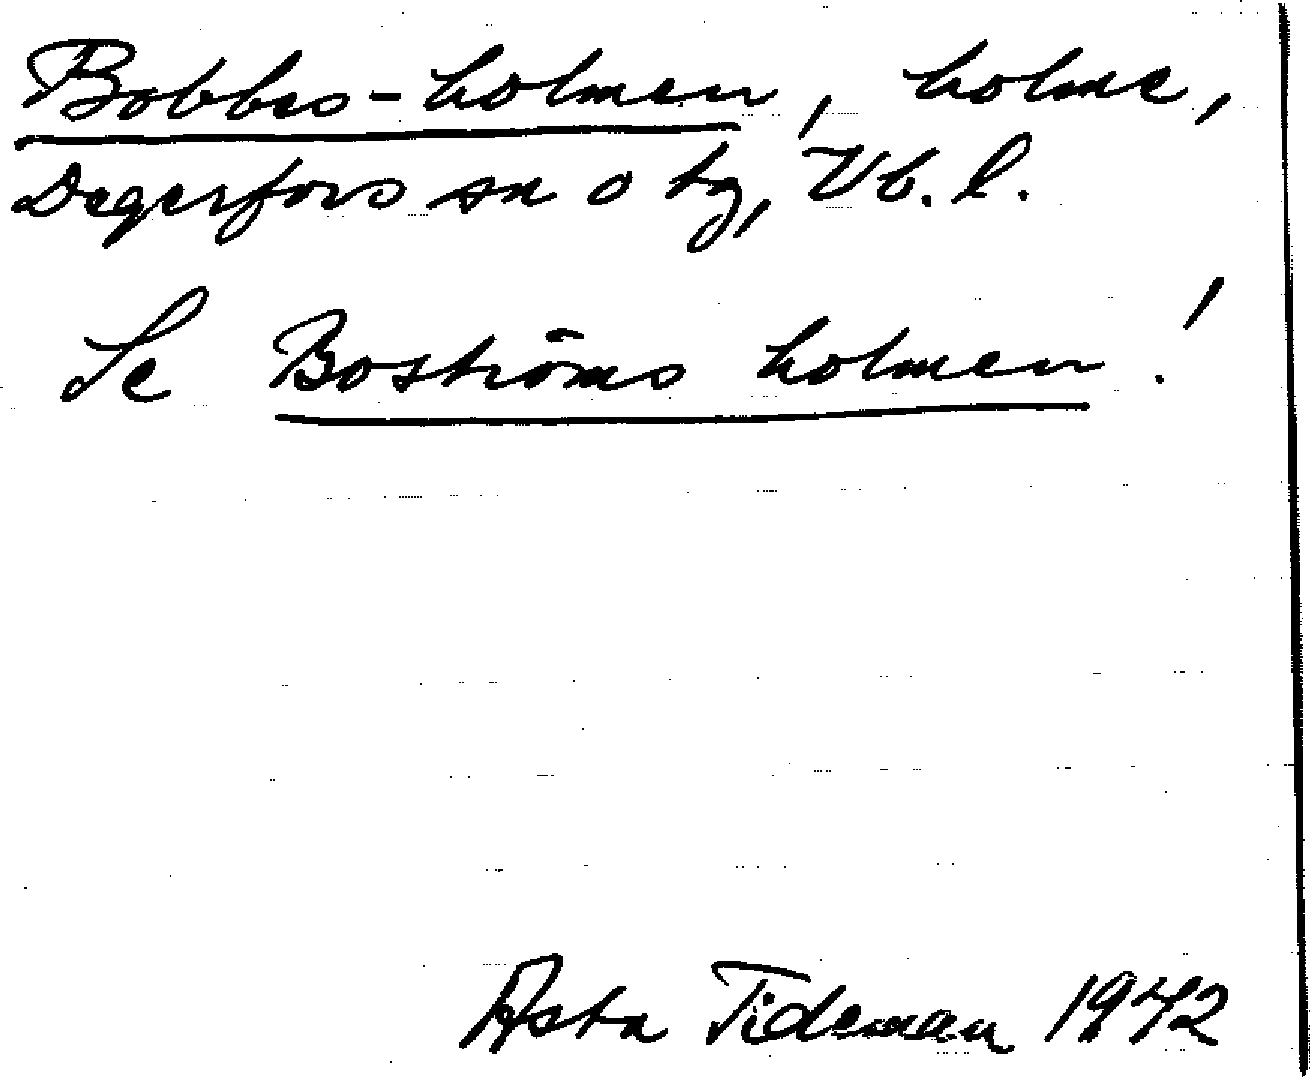 Bobbes-holmen, holme,
Degerfors sn o tg, Vb. l.
Se Boströms holmen!
Asta Tideman 1942